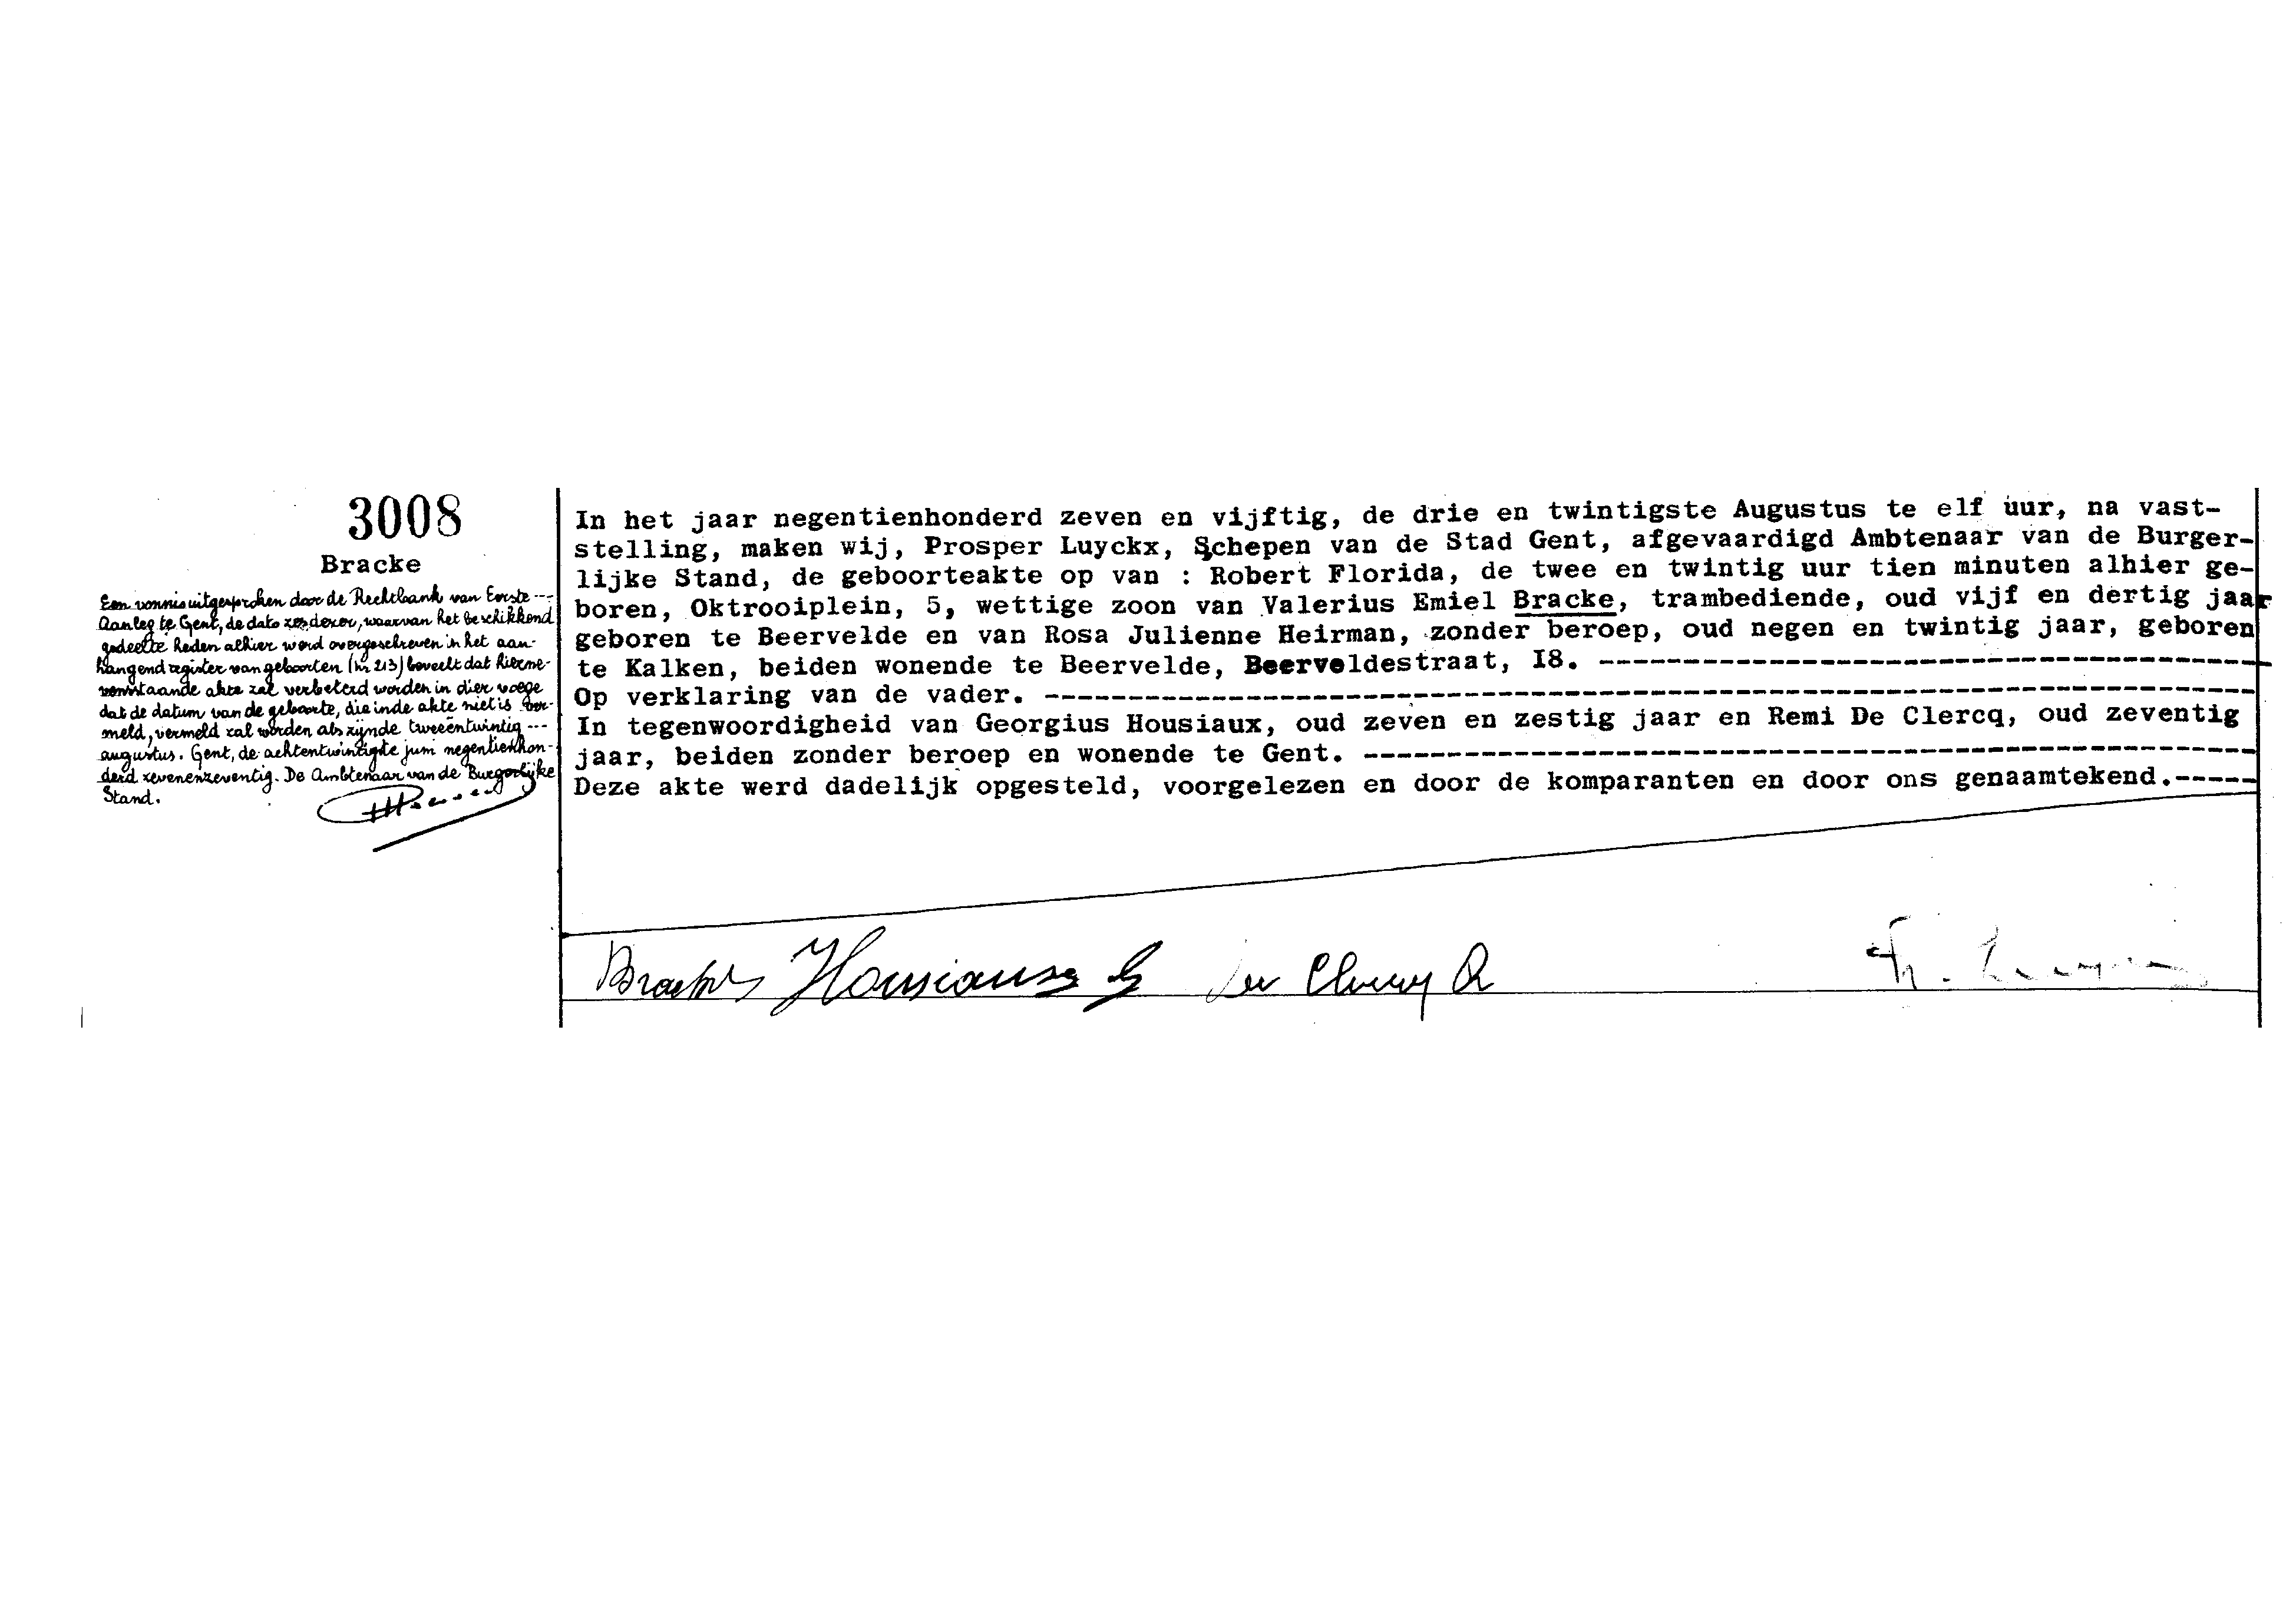 3008
Bracke
Een vonnis uitgesproken door de Rechtbank van Eerste ---
Aanleg te Gent, de dato waarvan het beschikkend
gedeelte heden alhier werd overgeschreven in het aan-
hangend register van geboorten (nr 213) beveelt dat hierne-
venstaande akte zal verbeterd worden in dier voege
dat de datum van de geboorte, die in de akte niet is ver-
meld, vermeld zal worden als zijnde tweeëntwintig ---
augustus. Gent, de achtentwintigste juni negentienhon-
derd zevenenzeventig. De Ambtenaar van de Burgerlijke
Stand.
In het jaar negentienhonderd zeven en vijftig, de drie en twintigste Augustus te elf uur, na vast-
stelling, maken wij, Prosper Luyckx, Schepen van de Stad Gent, afgevaardigd Ambtenaar van de Burger-
lijke Stand, de geboorteakte op van : Robert Florida, de twee en twintig uur tien minuten alhier ge-
boren, Oktrooiplein, 5, wettige zoon van Valerius Emiel Bracke, trambediende, oud vijf en dertig jaar
geboren te Beervelde en van Rosa Julienne Heirman, zonder beroep, oud negen en twintig jaar, geboren
te Kalken, beiden wonende te Beervelde, Beerveldestraat, I8. ----------
Op verklaring van de vader. ----------
In tegenwoordigheid van Georgius Housiaux, oud zeven en zestig jaar en Remi De Clercq, oud zeventig
jaar, beiden zonder beroep en wonende te Gent. ----------
Deze akte werd dadelijk opgesteld, voorgelezen en door de komparanten en door ons genaamtekend.-----
Housiaux G De Clercq R